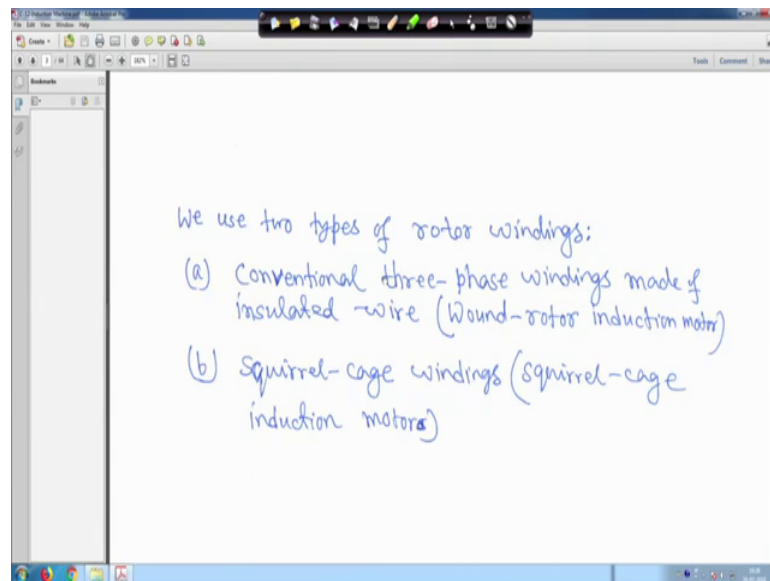 E-12-Induction Machine.pdf - Adobe Acrobat Pro
File Edit View Window Help
Create
3 / 66
182%
Tools Comment Share
Bookmarks
We use two types of rotor windings:
(a) Conventional three-phase windings made of
insulated-wire (Wound-rotor induction motor)
(b) Squirrel-cage windings (squirrel-cage
induction motors)